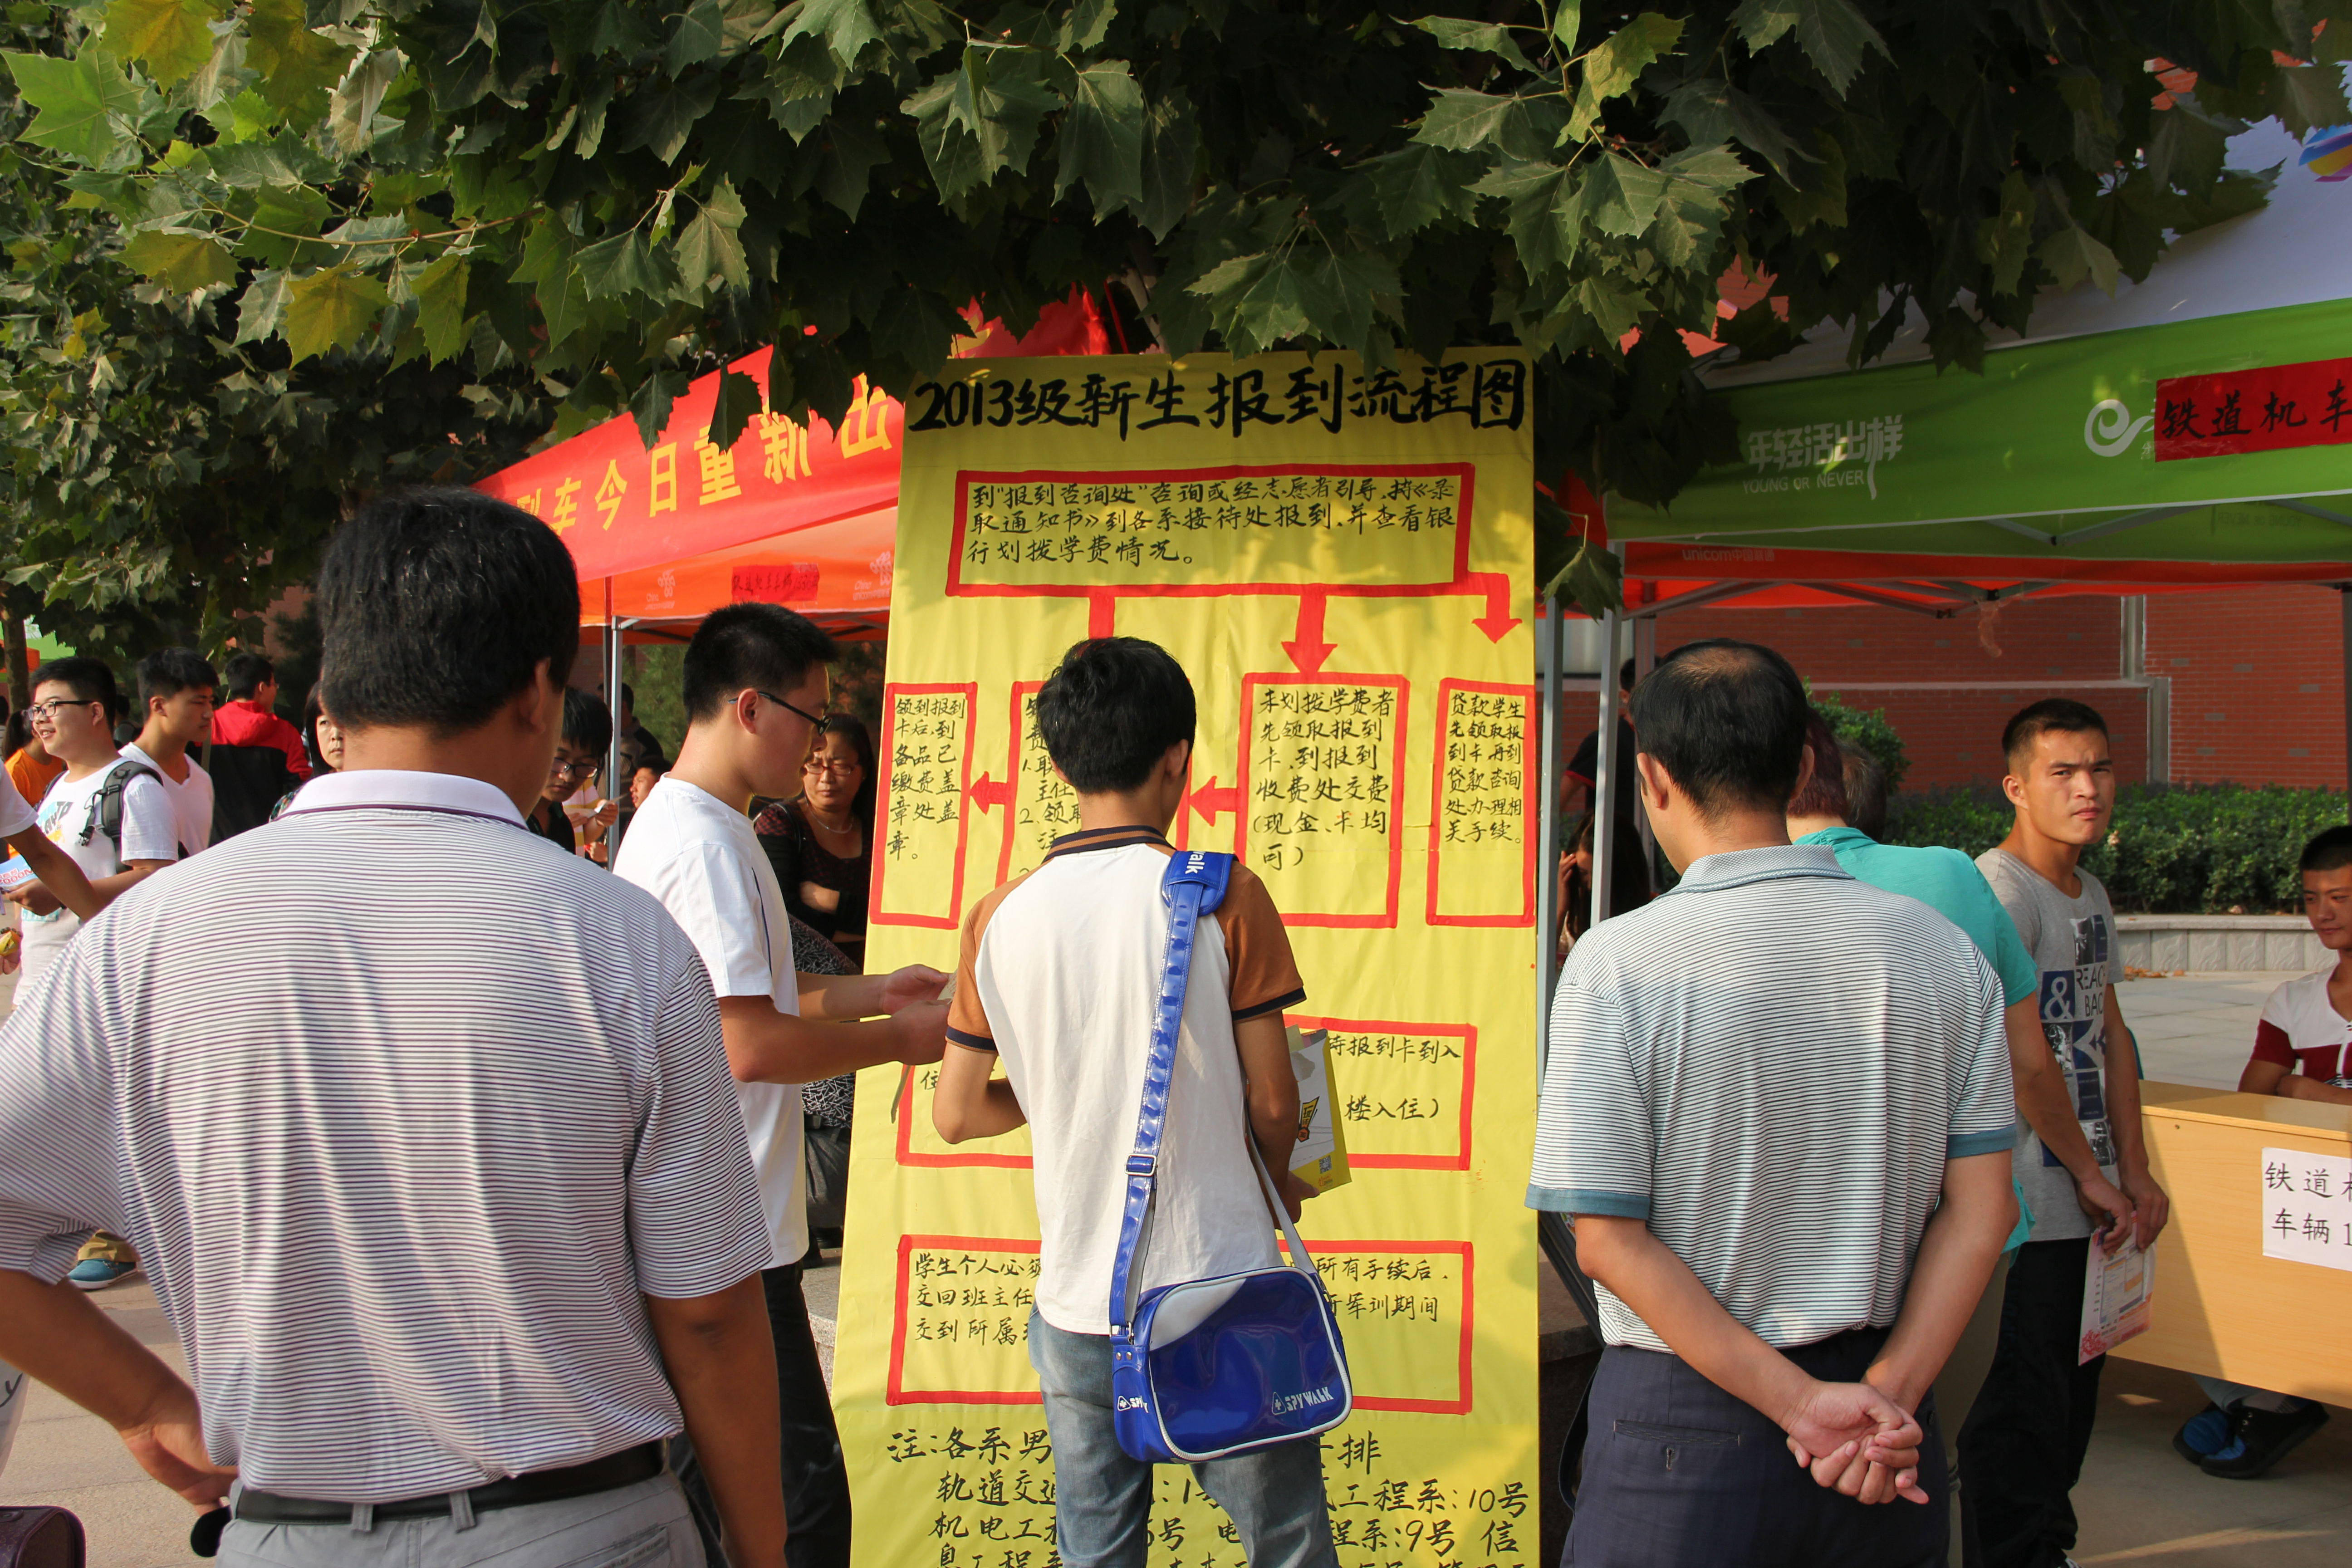 2013级新生报到流程图
到"报到咨询处"咨询或经志愿者引导,持《录
取通知书》到各系接待处报到,并查看银
行划拨学费情况。
领到报到
卡后,到
备品已
缴费盖
章处盖
章。
费
1.取
主任
2.领取
注
未划拨学费者
先领取报到
卡,到报到
收费处交费
(现金、卡均
可)
贷款学生
先领取报
到卡,再到
贷款咨询
处,办理相
关手续。
持报到卡到入
住
楼入住)
学生个人必须
交回班主任
交到所属
所有手续后,
军训期间
注:各系男
排
轨道交通
:1号
工程系:10号
机电工程
5号 电
程系:9号 信
息工程系
列车今日重新出
年轻活出样
YOUNG OR NEVER
铁道机车
unicom中国联通
铁道机
车辆1
REACH
BACK
&
walk
SPYWALK
SPY